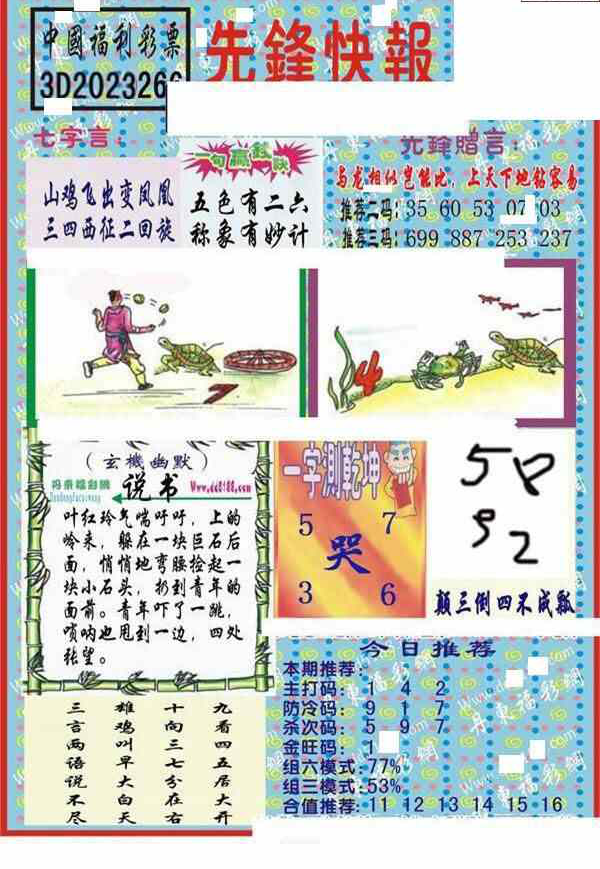 中國福利彩票
3D202326
先鋒快報
七字言:
山鸡飞出变凤凰
三四西征二回旋
一句赢彩诀
五色有二六
称象有妙计
先鋒贈言:
与龙相似岂能比，上天下地钻容易
推荐二码: 35 60 53 07 03
推荐三码: 699 887 253 237
7
4
(玄機幽默)
丹東福彩網
说书
Www.dd8188.com
叶红玲气喘吁吁，上的
岭来，躲在一块巨石后
面，悄悄地弯腰捡起一
块小石头，扔到青年的
面前。青年吓了一跳，
唢呐也甩到一边，四处
张望。
一字測乾坤
5 7
哭
3 6
58
92
颠三倒四不成瓢
九看四五居大开
十向三七分在右
雄鸡叫早大白天
三言两语说不尽
今日推荐
本期推荐:
主打码: 1 4 2
防冷码: 9 1 7
杀次码: 5 9 7
金旺码: 1
组六模式:77%
组三模式:53%
合值推荐:11 12 13 14 15 16